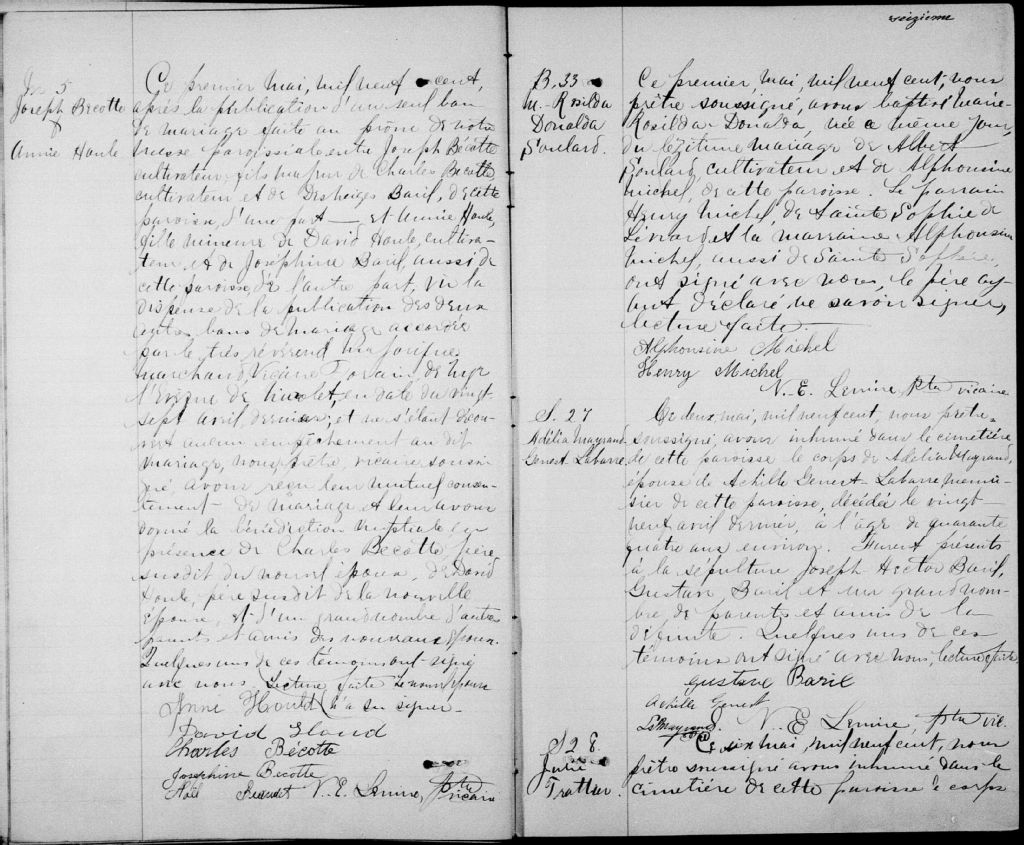 seizième
M 5
Joseph Becotte
&
Annie Houle
Ce premier mai, mil neuf cent,
après la publication d'un seul ban
de mariage faite au prône de notre
messe paroissiale, entre Joseph Becotte
cultivateur, fils majeur de Charles Becotte
cultivateur et de Desneiges Baril, de cette
paroisse, d'une part — et Annie Houle,
fille mineure de David Houle, cultiva-
teur, et de Josephine Baril, aussi de
cette paroisse, de l'autre part, vu la
dispense de la publication des deux
autres bans de mariage accordée
par le très révérend
Marchand, Vicaire Forain, de Mgr
l'Evêque de Nicolet, en date du vingt
sept avril dernier; et ne s'étant décou-
vert aucun empêchement au dit
mariage, nous prêtre vicaire soussi-
gné, avons reçu leur mutuel consen-
tement de mariage et leur avons
donné la bénédiction nuptiale en
présence de Charles Becotte, père
susdit du nouvel époux, de David
Houle, père susdit de la nouvelle
épouse, et d'un grand nombre d'autres
parents et amis des nouveaux époux.
Quelques uns de ces témoins ont signé
avec nous. Lecture faite Le nouvel époux
Annie Hould n'a su signer.
David Houd
Charles Bécotte
Josephine Becotte
N. E. Lemire, Ptre vicaire
B. 33
M. Rosilda
Donalda
Soulard.
Ce premier mai, mil neuf cent, nous
prêtre soussigné, avons baptisé Marie-
Rosilda-Donalda, née ce même jour,
du légitime mariage de Albert
Soulard cultivateur et de Alphonsine
Michel, de cette paroisse. Le parrain
Henry Michel de Sainte Sophie de
Lévrard et la marraine Alphonsine
Michel, aussi de Sainte Sophie,
ont signé avec nous, le père ay-
ant déclaré ne savoir signer,
lecture faite.
Alphonsine Michel
Henry Michel
N. E. Lemire, Ptre vicaire
S. 27
Adélia Mayrand
Genest Labarre
Ce deux mai, mil neuf cent, nous prêtre
soussigné, avons inhumé dans le cimetière
de cette paroisse le corps de Adélia Mayrand,
épouse de Achille Genest-Labarre menui-
sier de cette paroisse, décédée le vingt
neuf avril dernier, à l'âge de quarante
quatre ans environ. Furent présents
à la sépulture Joseph Hector Baril,
Gustave Baril et un grand nom-
bre de parents et amis de la
défunte. Quelques uns de ces
témoins ont signé avec nous, lecture faite.
Gustave Baril
Achille Genest
N. E. Lemire, Ptre vic.
S 28.
Julie
Trottier.
Ce six mai, mil neuf cent, nous
prêtre soussigné avons inhumé dans le
cimetière de cette paroisse le corps